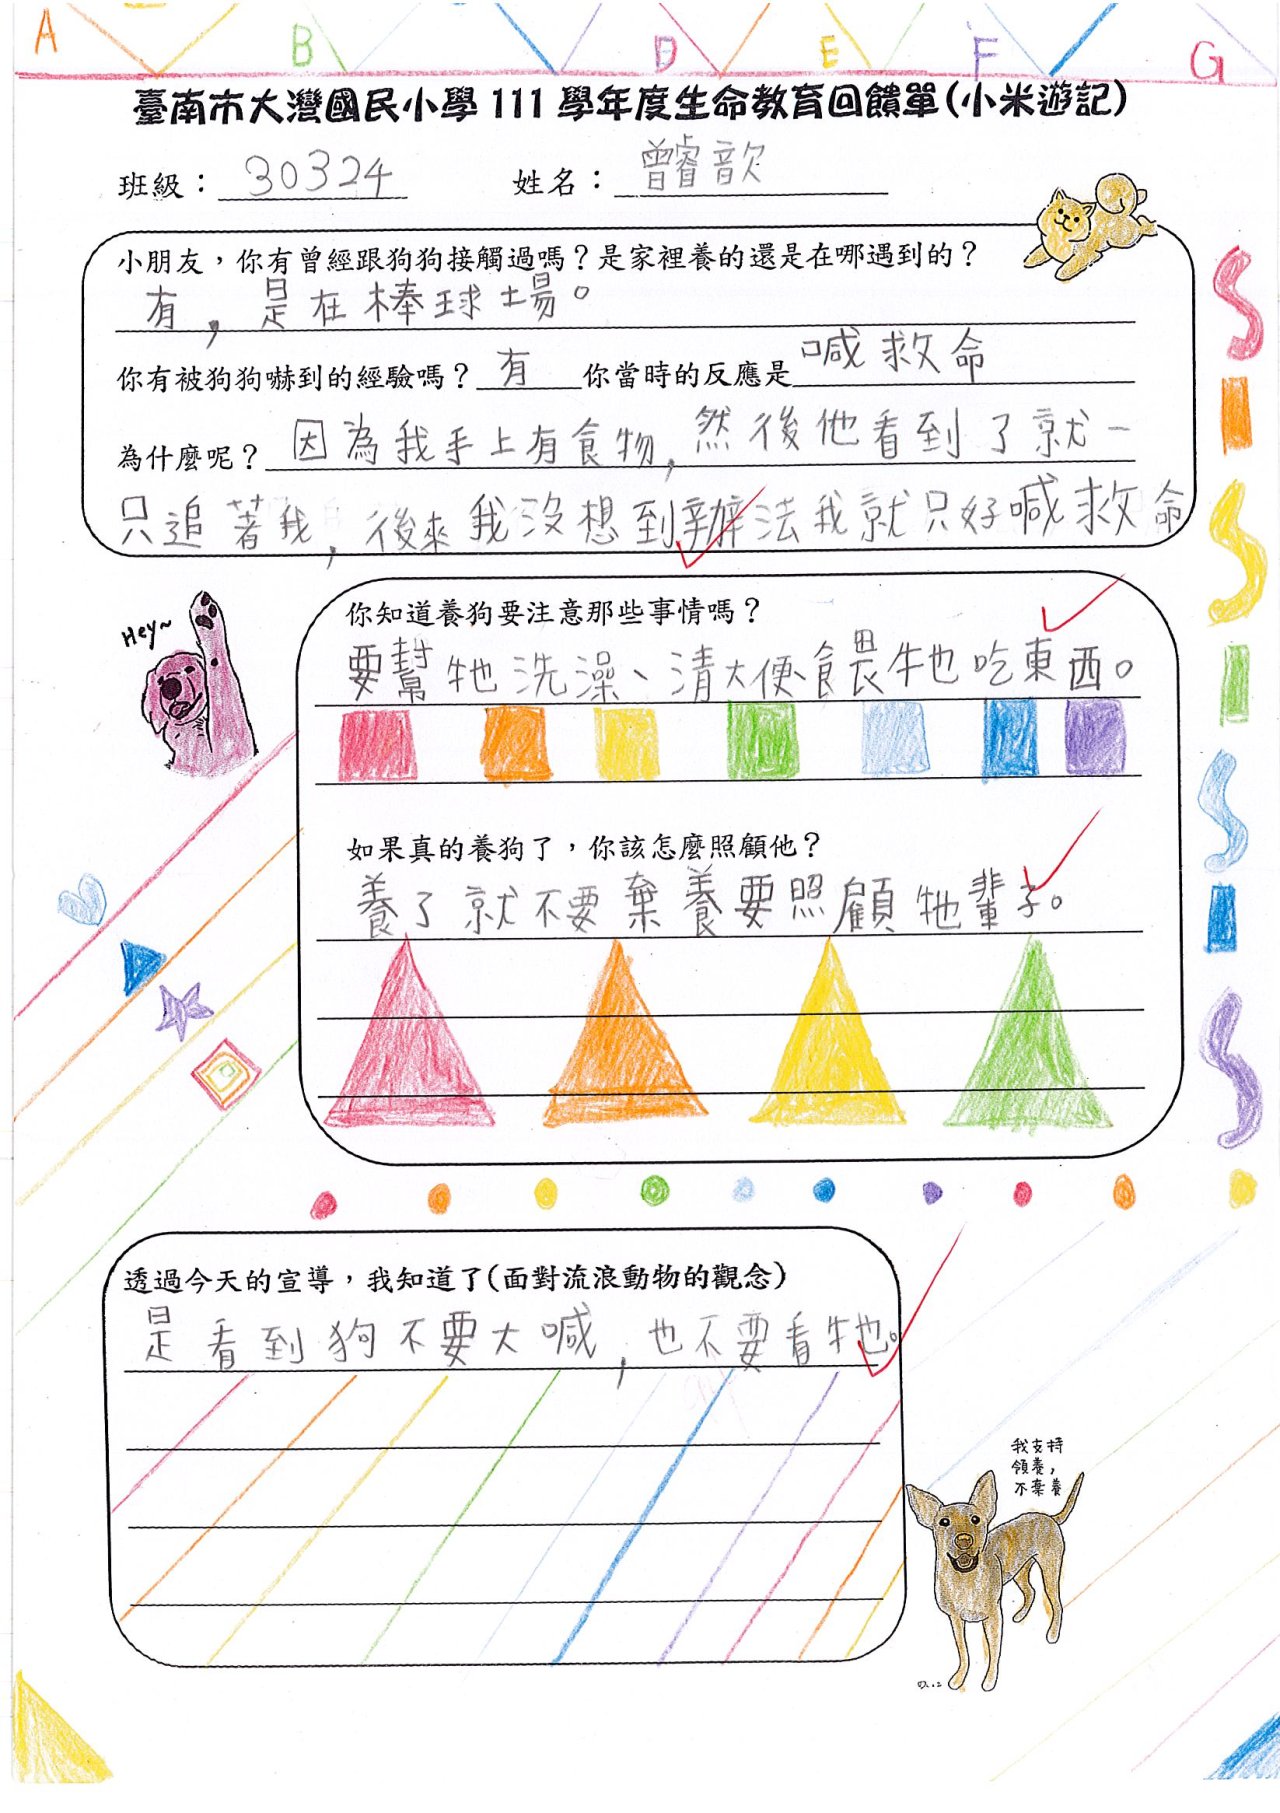 A B D E F G
臺南市大灣國民小學 111 學年度生命教育回饋單(小米遊記)
班級：30324 姓名：曾睿歆
小朋友，你有曾經跟狗狗接觸過嗎？是家裡養的還是在哪遇到的？
有，是在棒球場。
你有被狗狗嚇到的經驗嗎？有 你當時的反應是喊救命
為什麼呢？因為我手上有食物，然後他看到了就一
只追著我，後來我沒想到辦法我就只好喊救命
Hey~
你知道養狗要注意那些事情嗎？
要幫牠洗澡、清大便、餵牠吃東西。
如果真的養狗了，你該怎麼照顧他？
養了就不要棄養要照顧牠輩子。
透過今天的宣導，我知道了(面對流浪動物的觀念)
是看到狗不要大喊，也不要看牠。
我支持
領養，
不棄養